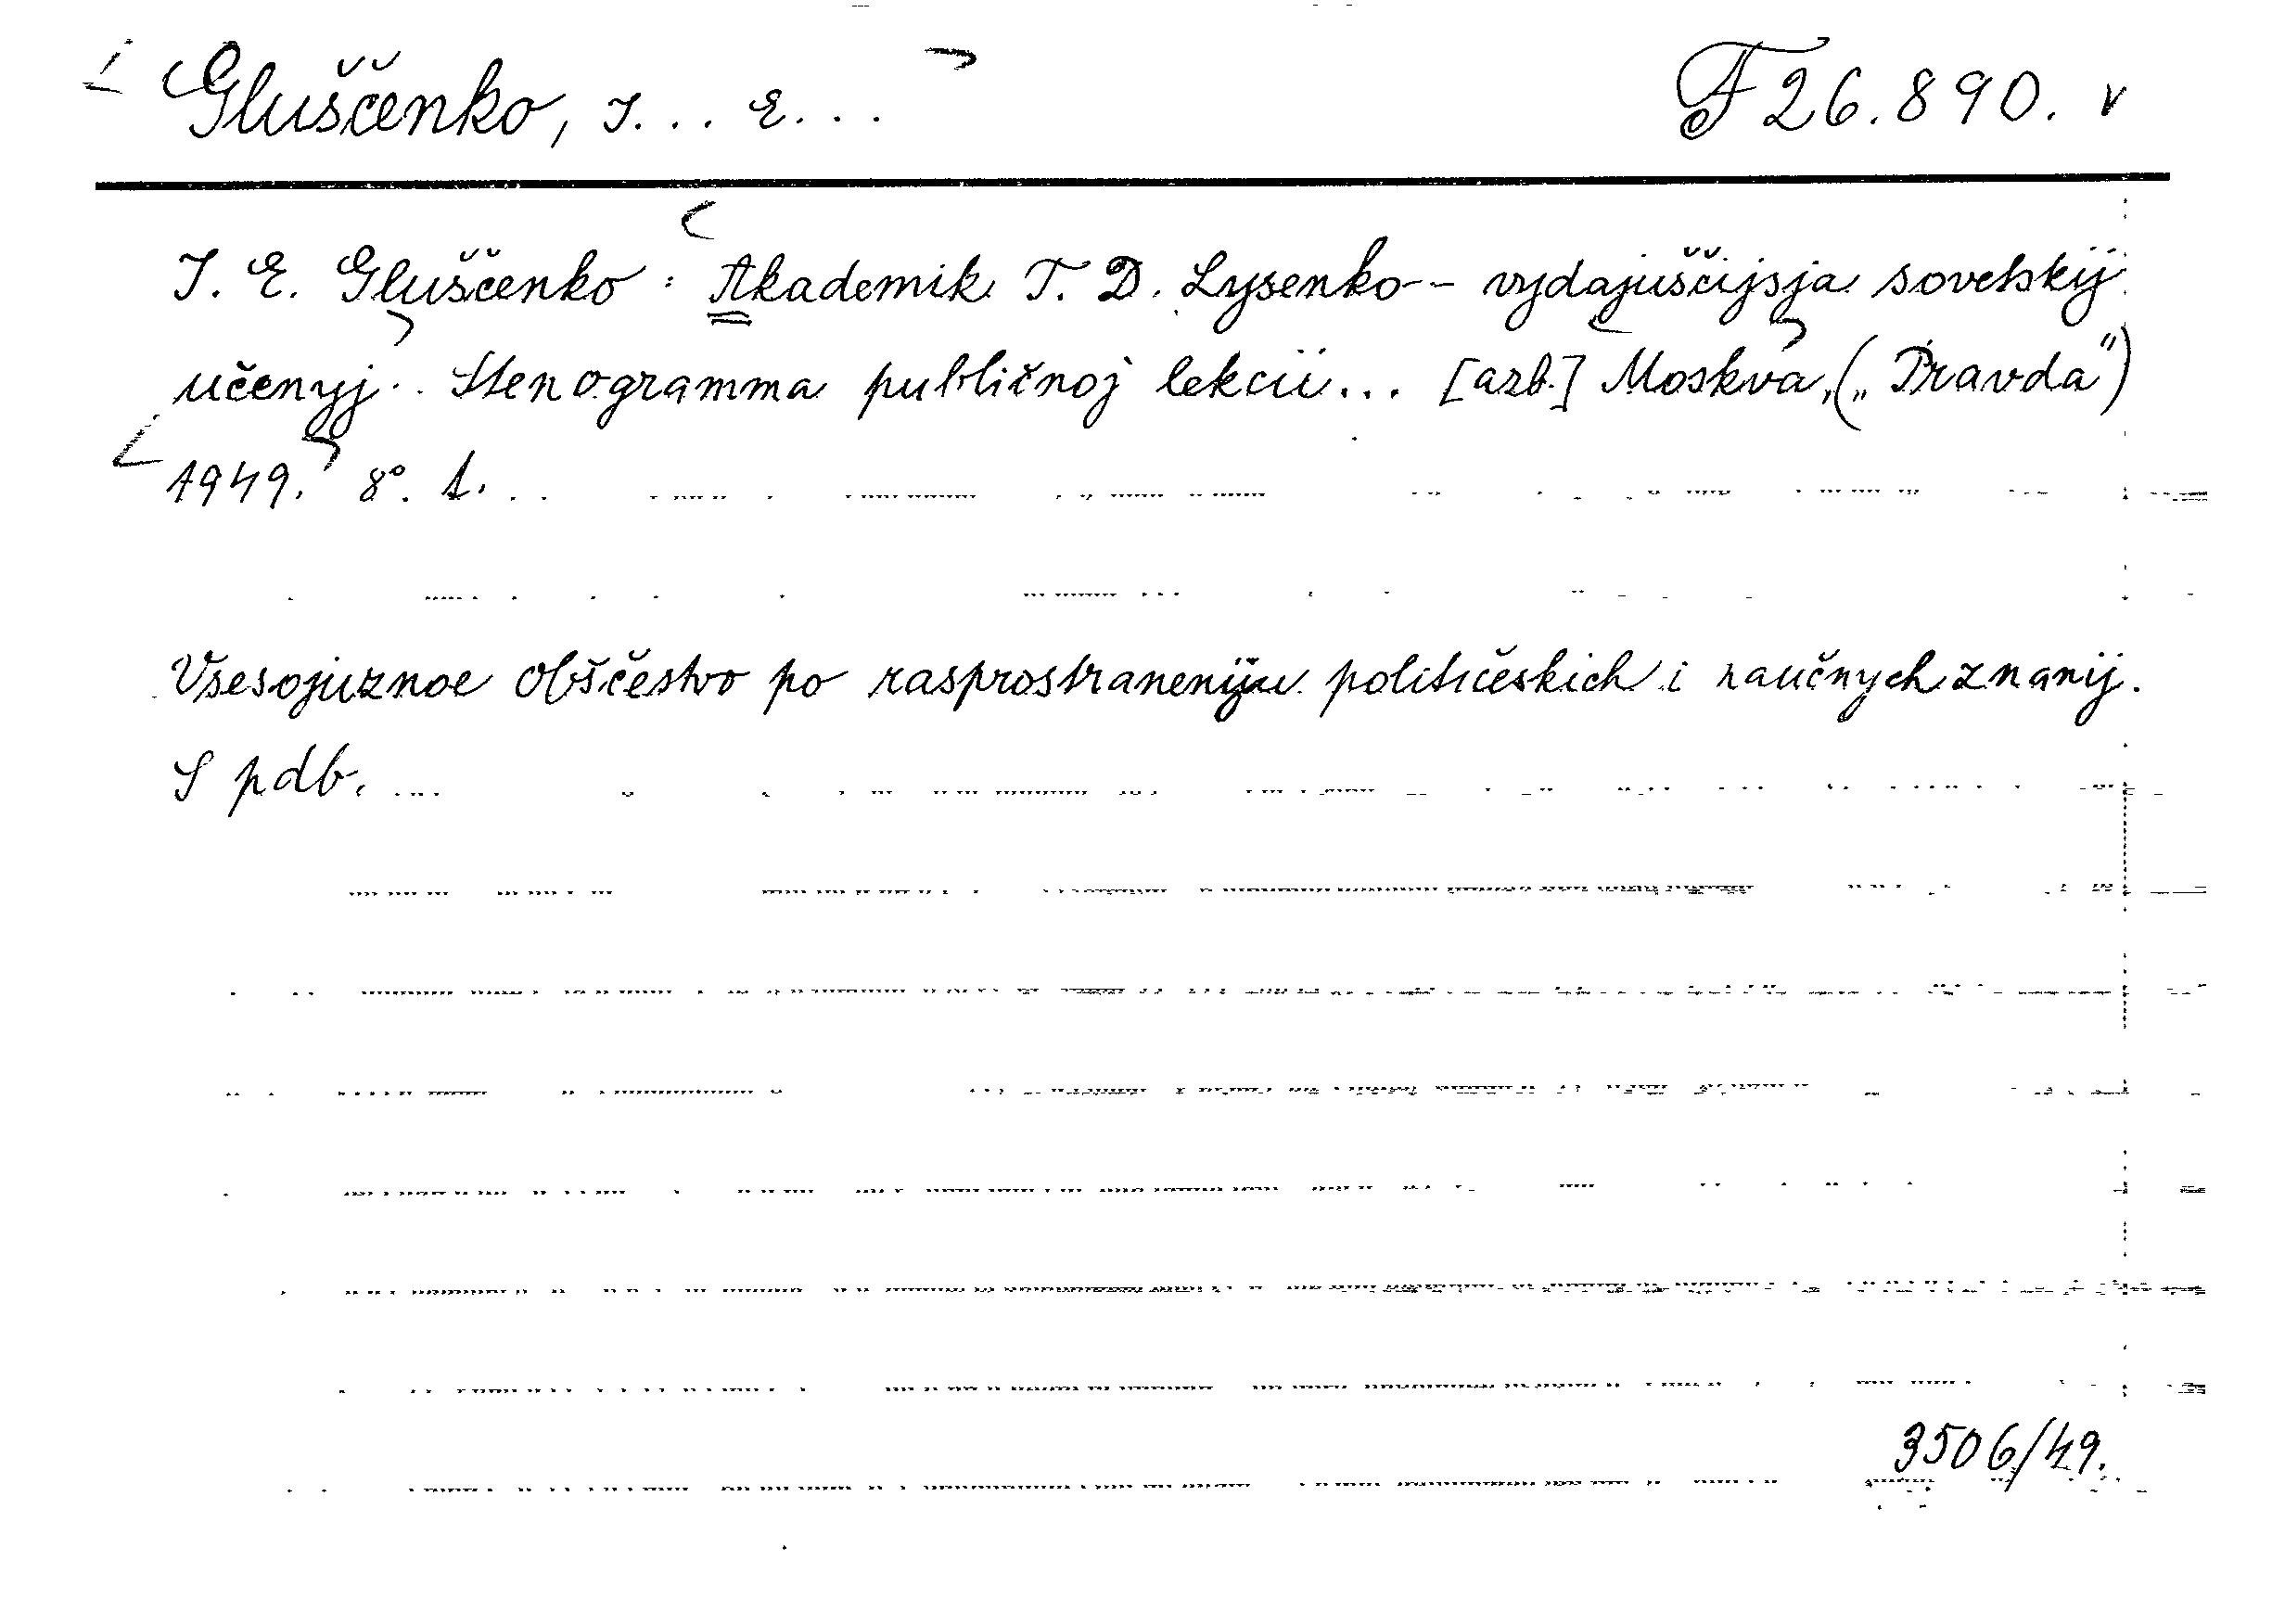 Gluščenko, I... E... F 26.890. v
I. E. Gluščenko: Akademik T. D. Lysenko -- vydajuščijsja sovetskij
učenyj. Stenogramma publičnoj lekcii... [azb.] Moskva, („Pravda")
1949. 8°. 1.
Vsesojuznoe Obščestvo po rasprostraneniju političeskich i naučnych znanij.
S pdb.
3506/49.